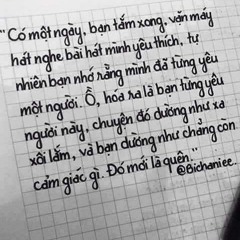 "Có một ngày, bạn tắm xong, vặn máy
hát nghe bài hát mình yêu thích, tự
nhiên bạn nhớ rằng mình đã từng yêu
một người. Ồ, hóa ra là bạn từng yêu
người này, chuyện đó dường như xa
xôi lắm, và bạn dường như chẳng còn
cảm giác gì. Đó mới là quên."
@Bichaniee..